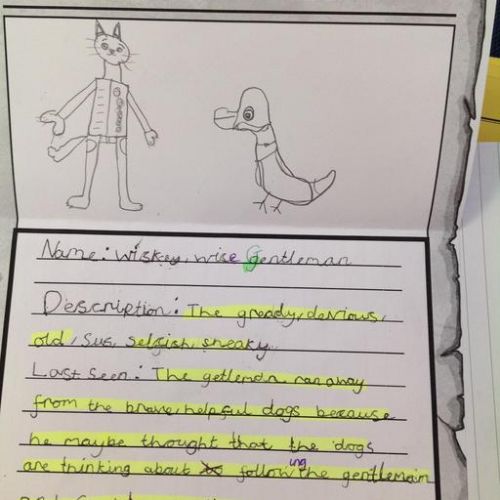 Name: wiskey, wise Gentleman
Description: The gready, devious,
old, sus, selfish, sneaky.
Last seen: The getleman ran away
from the brave, helpful dogs because
he maybe thought that the dogs
are thinking about following the gentleman
and